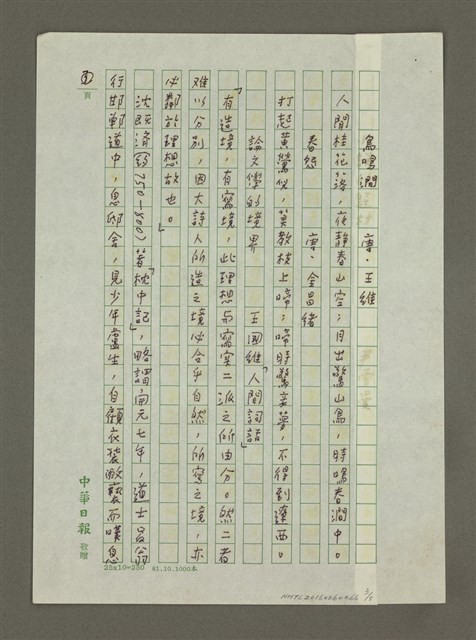 鳥鳴澗 唐·王維
人間桂花落，夜靜春山空；月出驚山鳥，時鳴春澗中。
春怨 唐·金昌緒
打起黃鶯似，莫教枝上啼；啼時驚妾夢，不得到遼西。
論文學的境界 王國維「人間詞話」
「有造境，有寫境，此理想与寫实二派之所由分。然二者
难以分別，因大詩人所造之境必合乎自然，所寫之境，亦
必鄰於理想故也。」
沈既济(約750-800)著「枕中記」，略謂，開元七年，道士呂翁
行邯鄲道中，息邸舍，見少年盧生，自顧衣裝敝褻而嘆息
頁
中華日報 敬贈
25x10=250 81.10.1000本
NMTL20160660466
3/5